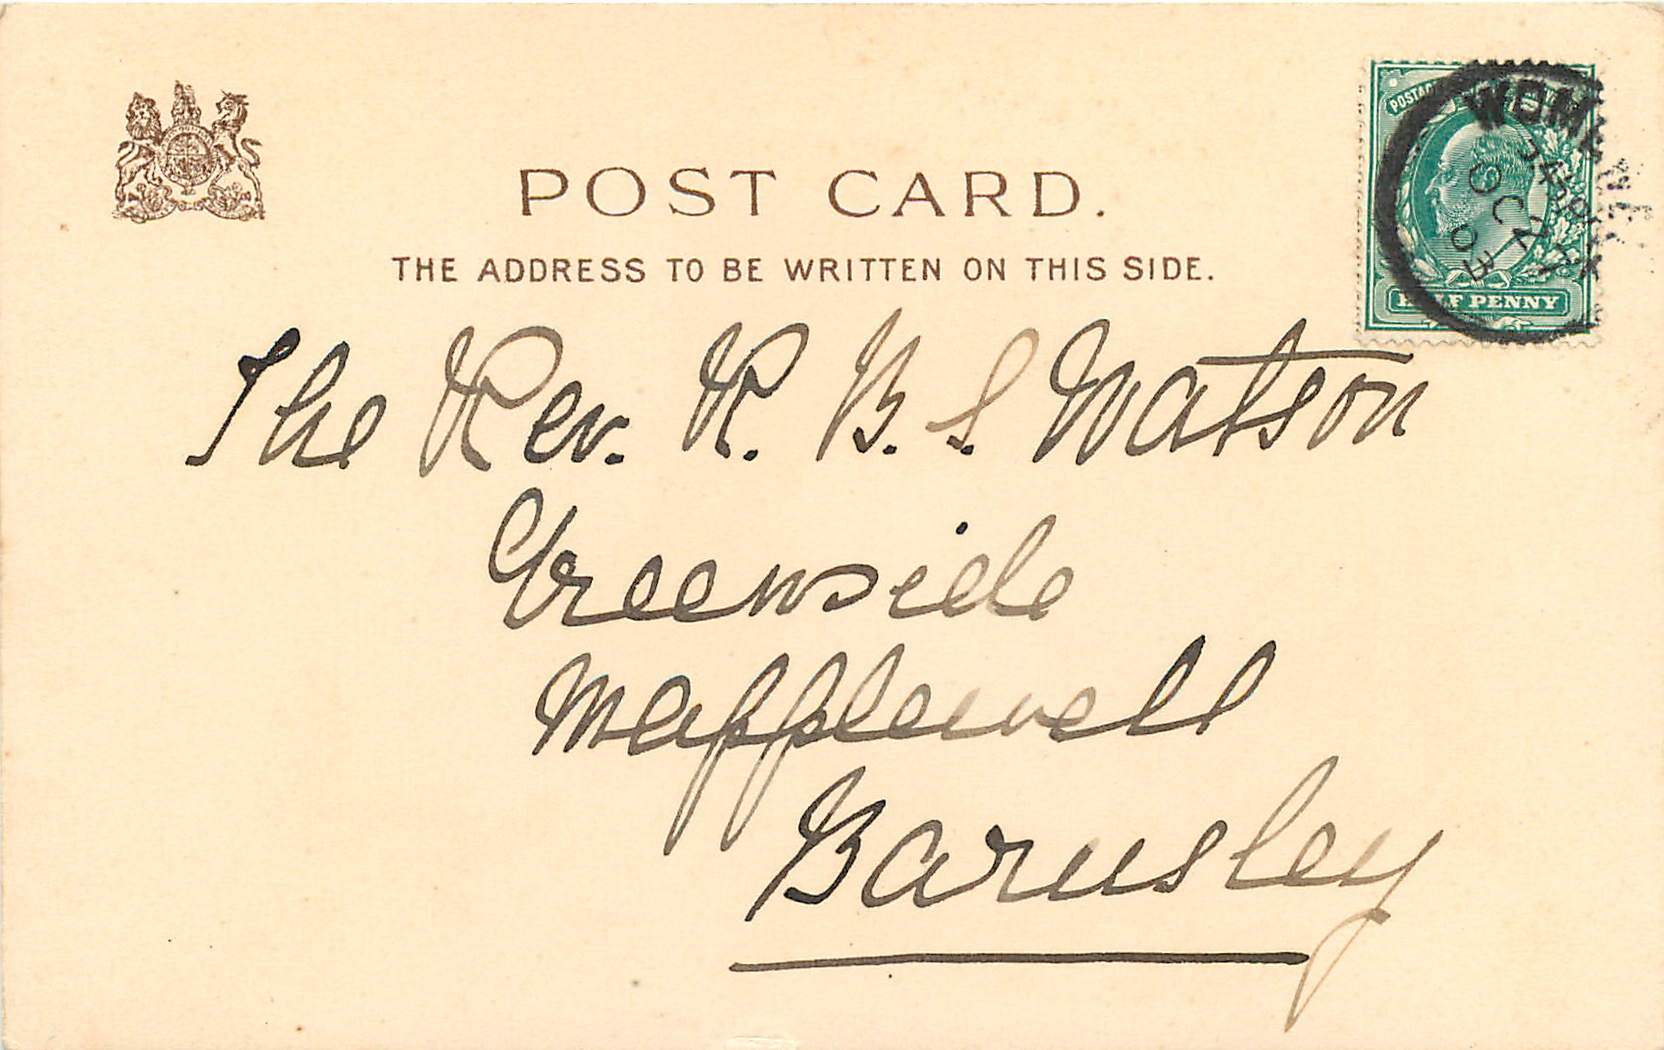 POST CARD.
THE ADDRESS TO BE WRITTEN ON THIS SIDE.
HALF PENNY
OC 27
03
The Rev. R. B. S. Watson
Greenside
Mapplewell
Barnsley